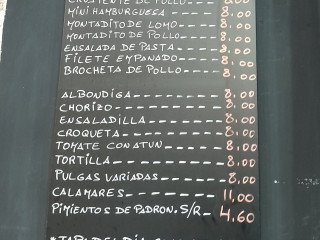 CRUJIENTE DE POLLO --- 8.00
MINI HAMBURGUESA --- 8.00
MONTADITO DE LOMO --- 8.00
MONTADITO DE POLLO --- 8.00
ENSALADA DE PASTA --- 8.00
FILETE EMPANADO --- 8.00
BROCHETA DE POLLO --- 8.00
ALBONDIGA --- 8.00
CHORIZO --- 8.00
ENSALADILLA --- 8.00
CROQUETA --- 8.00
TOMATE CON ATUN --- 8.00
TORTILLA --- 8.00
PULGAS VARIADAS --- 8.00
CALAMARES --- 11,00
PIMIENTOS DE PADRON. S/R - 4.60